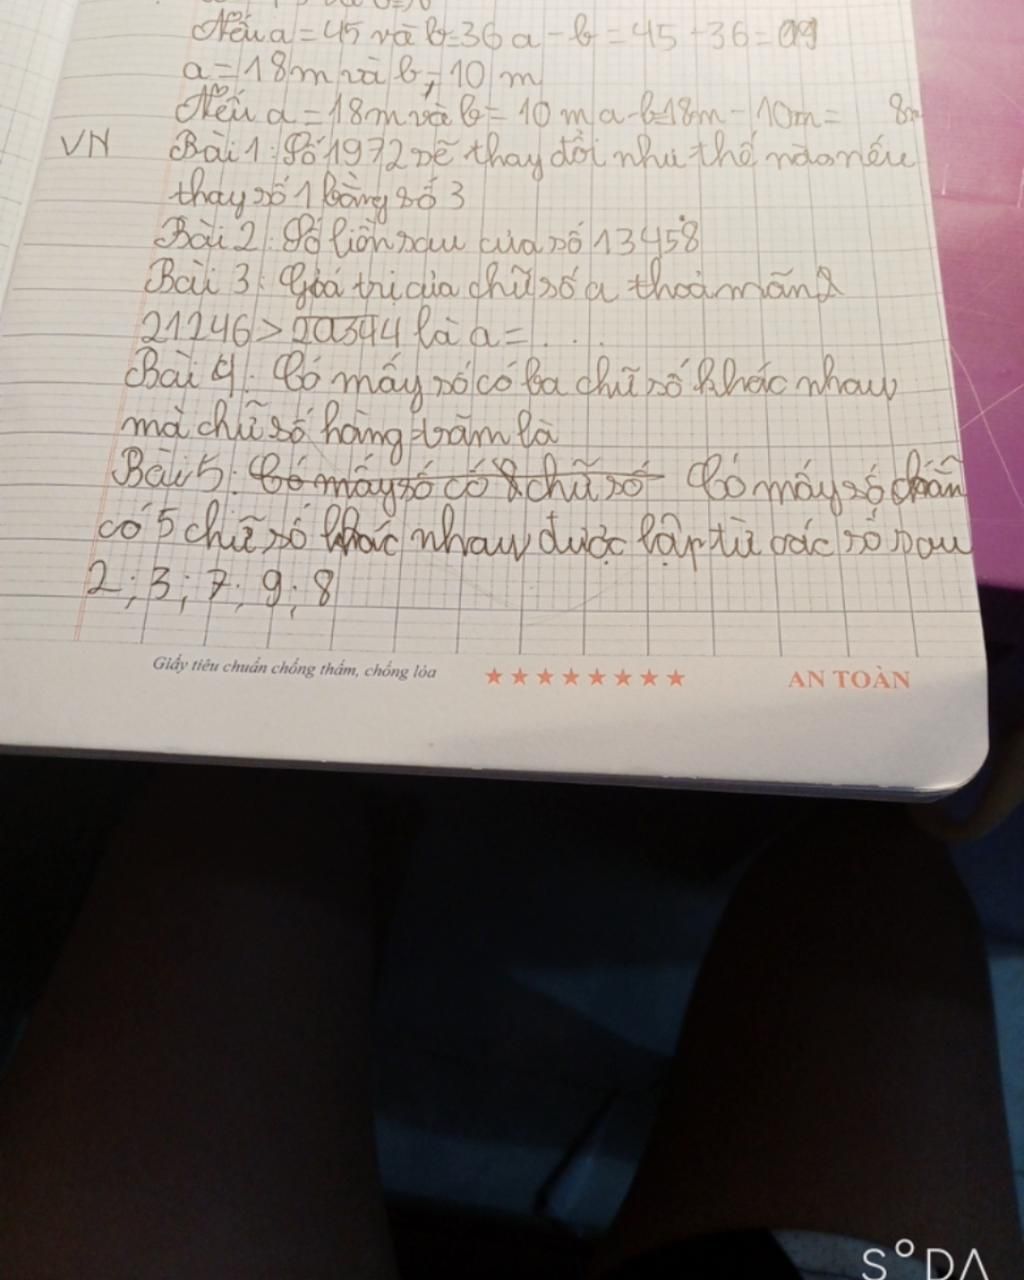 Nếu a = 45 và b = 36 a - b = 45 - 36 = 09
a = 18m và b = 10 m
Nếu a = 18m và b = 10 m a - b = 18m - 10m = 8m
VN Bài 1: Số 1972 sẽ thay đổi như thế nào nếu
thay số 1 bằng số 3
Bài 2: Số liền sau của số 13458
Bài 3: Giá trị của chữ số a thoả mãn
21246 > 2a344 là a = . . .
Bài 4: Có mấy số có ba chữ số khác nhau
mà chữ số hàng trăm là
Bài 5: Có mấy số có chữ số Có mấy số chẵn
có 5 chữ số khác nhau được lập từ các số sau
2; 3; 7; 9; 8
Giấy tiêu chuẩn chống thấm, chống lóa ★★★★★★★★ AN TOÀN
SODA